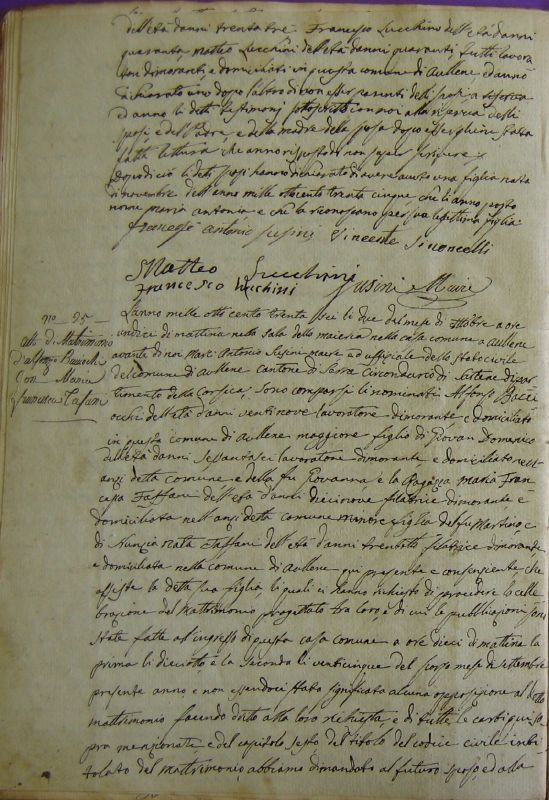 dell'età d'anni trenta tre Francesco Lucchino dell'età d'anni
quaranta, Matteo Lucchini dell'età d'anni quaranti tutti lavora
tori dimoranti e domiciliati in questa comune di Aullene ed anno
dichiarato uno dopo l'altro di non esser parenti delli sposi
ed anno li detti testimonj sottoscritti con noi alla riserva delli
sposi e del Padre, e della madre della sposa dopo essergliene stata
fatta lettura che anno risposto di non saper scrivere
Dopo di ciò li detti sposi hanno dichiarato di avere avuto una figlia nata
di novembre dell'anno mille otto cento trenta cinque che li anno posto
nome Maria Antonia e che la riconoscano per sua legittima figlia
Francesco Antonio Susini Vincente Simoncelli
Matteo Lucchini
Francesco Lucchini Susini Maire
n° 25
Atto di Matrimonio
d'Alfonso
Con Maria
Francesca Tafani
L'anno mille otto cento trenta sei le due del mese di ottobre a ore
undici di mattina nella sala della maieria nella casa comune a Aullene
avante di noi Marc Antonio Susini maere ed ufficiale dello stato civile
del comune di Aullene cantone di Serra Circondario di Sartene dipar
timento della Corsica, sono comparsi li nominati Alfonso Bacci
occhi dell'età d'anni venti nove lavoratore dimorante, e domiciliato
in questa comune di Aullene maggiore figlio di Giovan Domenico
dell'età d'anni sessanta sei lavoratore dimorante e domiciliato nell'
anzi detta comune e della fu Giovanna e la Ragazza Maria Fran
cesca Taffani dell'età d'anni diecinove filatrice dimorante e
domiciliata nell'anzi detta comune minore figlia del fu Martino, e
di Nunzia nata Taffani dell'età d'anni trentotto filatrice dimorante
e domiciliata nella comune di Aullene qui presente e consenziente che
assiste la detta sua figlia, li quali ci hanno richiesto di procedere la cele
brazione del Mattrimonio progettato tra loro, e di cui le pubblicazioni sono
state fatte all'ingresso di questa casa comune a ore dieci di mattina la
prima li dieciotto, e la seconda li venticinque del scorso mese di settembre
presente anno e non essendoci stata significata alcuna opposizione al detto
mattrimonio facendo dritto alla loro richiesta, e di tutte le carti qui so
pra menzionate e del capitolo sesto del titolo del codice civile inti
tolato del mattrimonio, abbiamo dimandato al futuro sposo, ed alla